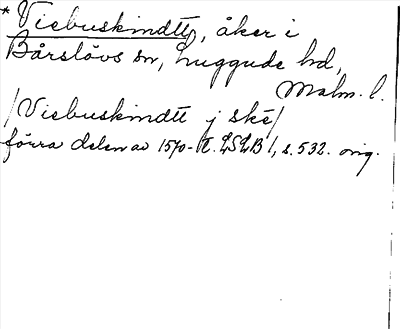 * Viebuskindtt, åker i
Bårslövs sn, Luggude hd,
Malm. l.
/Viebuskindtt j ske/
förra delen av 1570-t. LSLB 1, s. 532. orig.